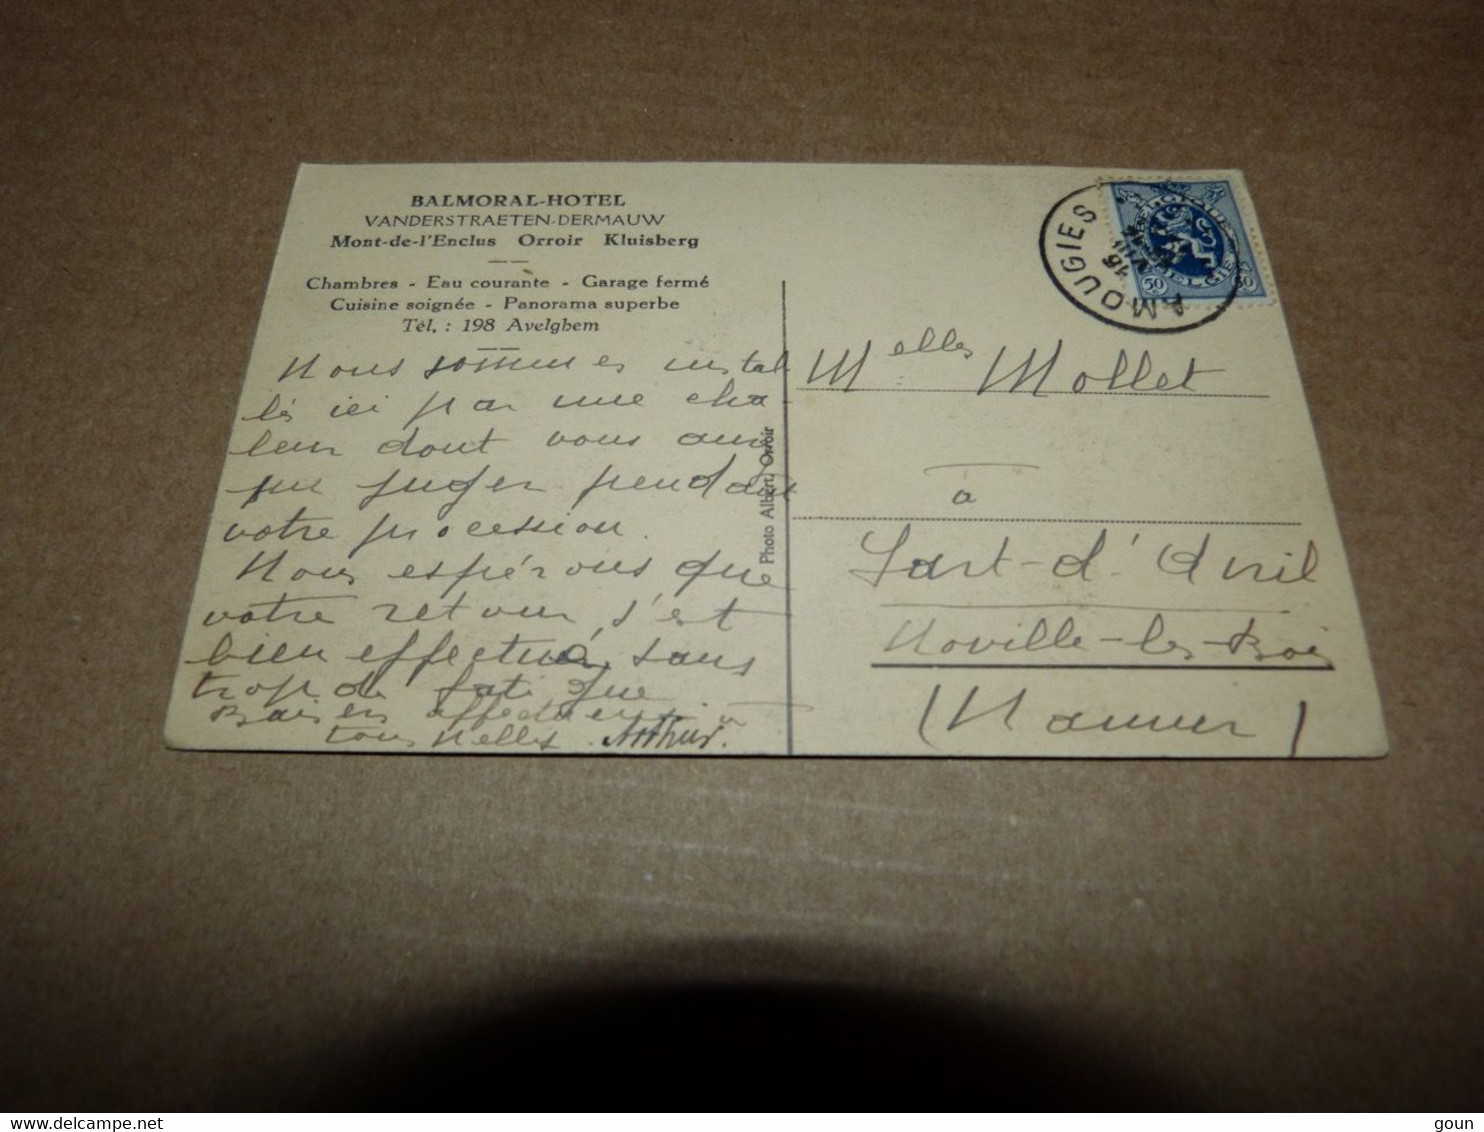 BALMORAL-HOTEL
VANDERSTRAETEN-DERMAUW
Mont-de-l'Enclus Orroir Kluisberg
Chambres - Eau courante - Garage fermé
Cuisine soignée - Panorama superbe
Tél. : 198 Avelghem
Nous sommes instal
lés ici par une cha-
leur dont vous aurez
pu juger pendant
votre procession.
Nous espérons que
votre retour s'est
bien effectué, sans
trop de fatigue
Baisers affectueux à
tous Nelly. Arthur.
Photo Albert, Orroir
AMOUGIES
15
VIII
BELGIQUE
BELGIË
50 50
Melles Mollet
a
Sart-d'Avril
Noville-les-Bois
(Namur)
delcampe.net
goun